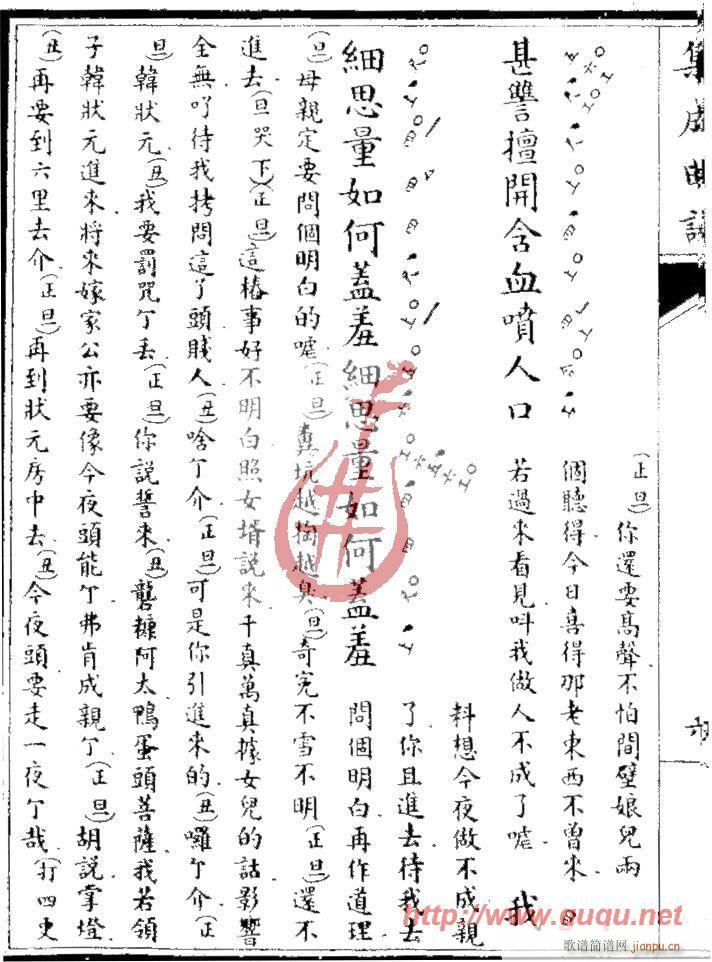 集成曲譜
(正旦)你還要高聲不怕間壁娘兒兩
個聽得今日喜得那老東西不曾來
甚讐擅開含血噴人口 若過來看見呌我做人不成了嘘 我
料想今夜做不成親
了你且進去待我去
細思量如何蓋羞細思量如何蓋羞 問個明白再作道理
(旦)母親定要問個明白的嘘(正旦)糞坑越掏越臭(旦)奇寃不雪不明(正旦)還不
進去(旦哭下)(正旦)這樁事好不明白照女壻説來千真萬真據女兒的話影響
全無吖待我拷問這丫頭賤人(丑)啥丫介(正旦)可是你引進來的(丑)囉丫介(正
旦)韓狀元(丑)我要罰咒丫丢(正旦)你説誓來(丑)礱糠阿太鴨蛋頭菩薩我若領
子韓狀元進來將來嫁家公亦要像今夜頭能丫弗肯成親丫(正旦)胡説掌燈
(丑)再要到六里去介(正旦)再到狀元房中去(丑)今夜頭要走一夜丫哉(打四更
http://www.guqu.net
歌谱简谱网 jianpu.cn